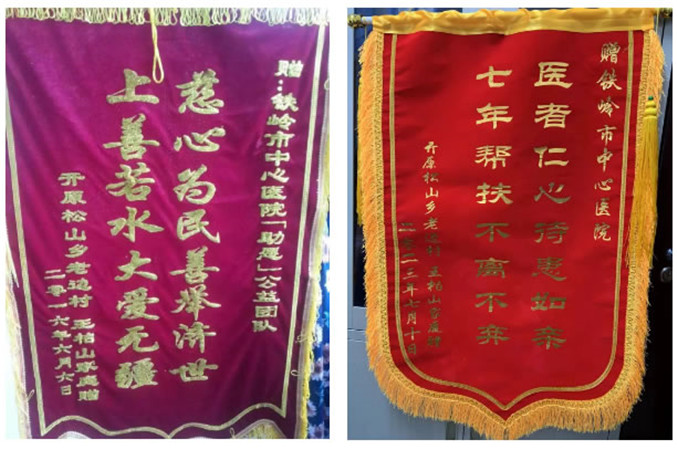 赠:铁岭市中心医院「助医」公益团队
慈心为民善举济世
上善若水大爱无疆
开原松山乡老边村 王柏山家庭赠
二零一六年六月六日
赠铁岭市中心医院
医者仁心待患如亲
七年帮扶不离不弃
开原松山乡老边村 王柏山家庭赠
二零二三年七月十日